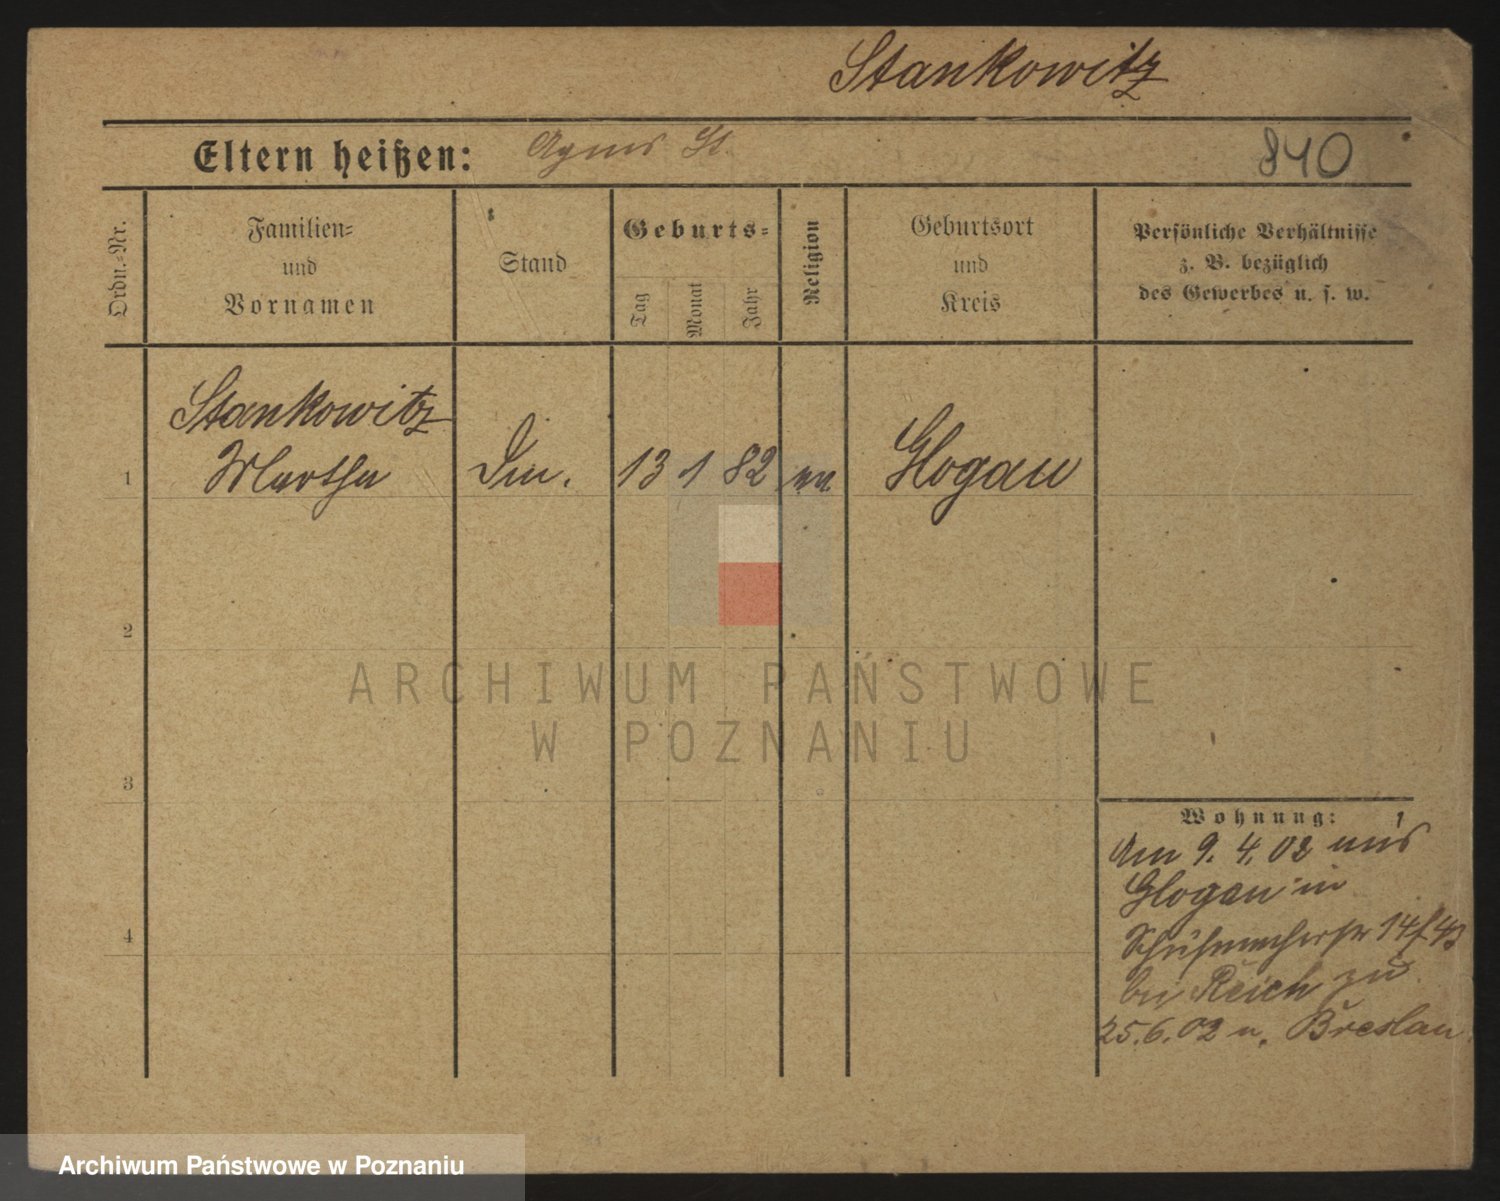 Stankowitz
Eltern heißen: Agnes St.
840
Ordn.-Nr.
Familien-
und
Vornamen
Stand
Geburts-
Tag
Monat
Jahr
Religion
Geburtsort
und
Kreis
Persönliche Verhältnisse
z. B. bezüglich
des Gewerbes u. s. w.
Stankowitz
1 Martha 13 1 82 Glogau
2
3
4
Wohnung:
Am 9. 4. 02 aus
Glogau in
Schuhmacherstr 14
bei Reich zu
25. 6. 02 n. Breslau
ARCHIWUM PAŃSTWOWE
W POZNANIU
Archiwum Państwowe w Poznaniu